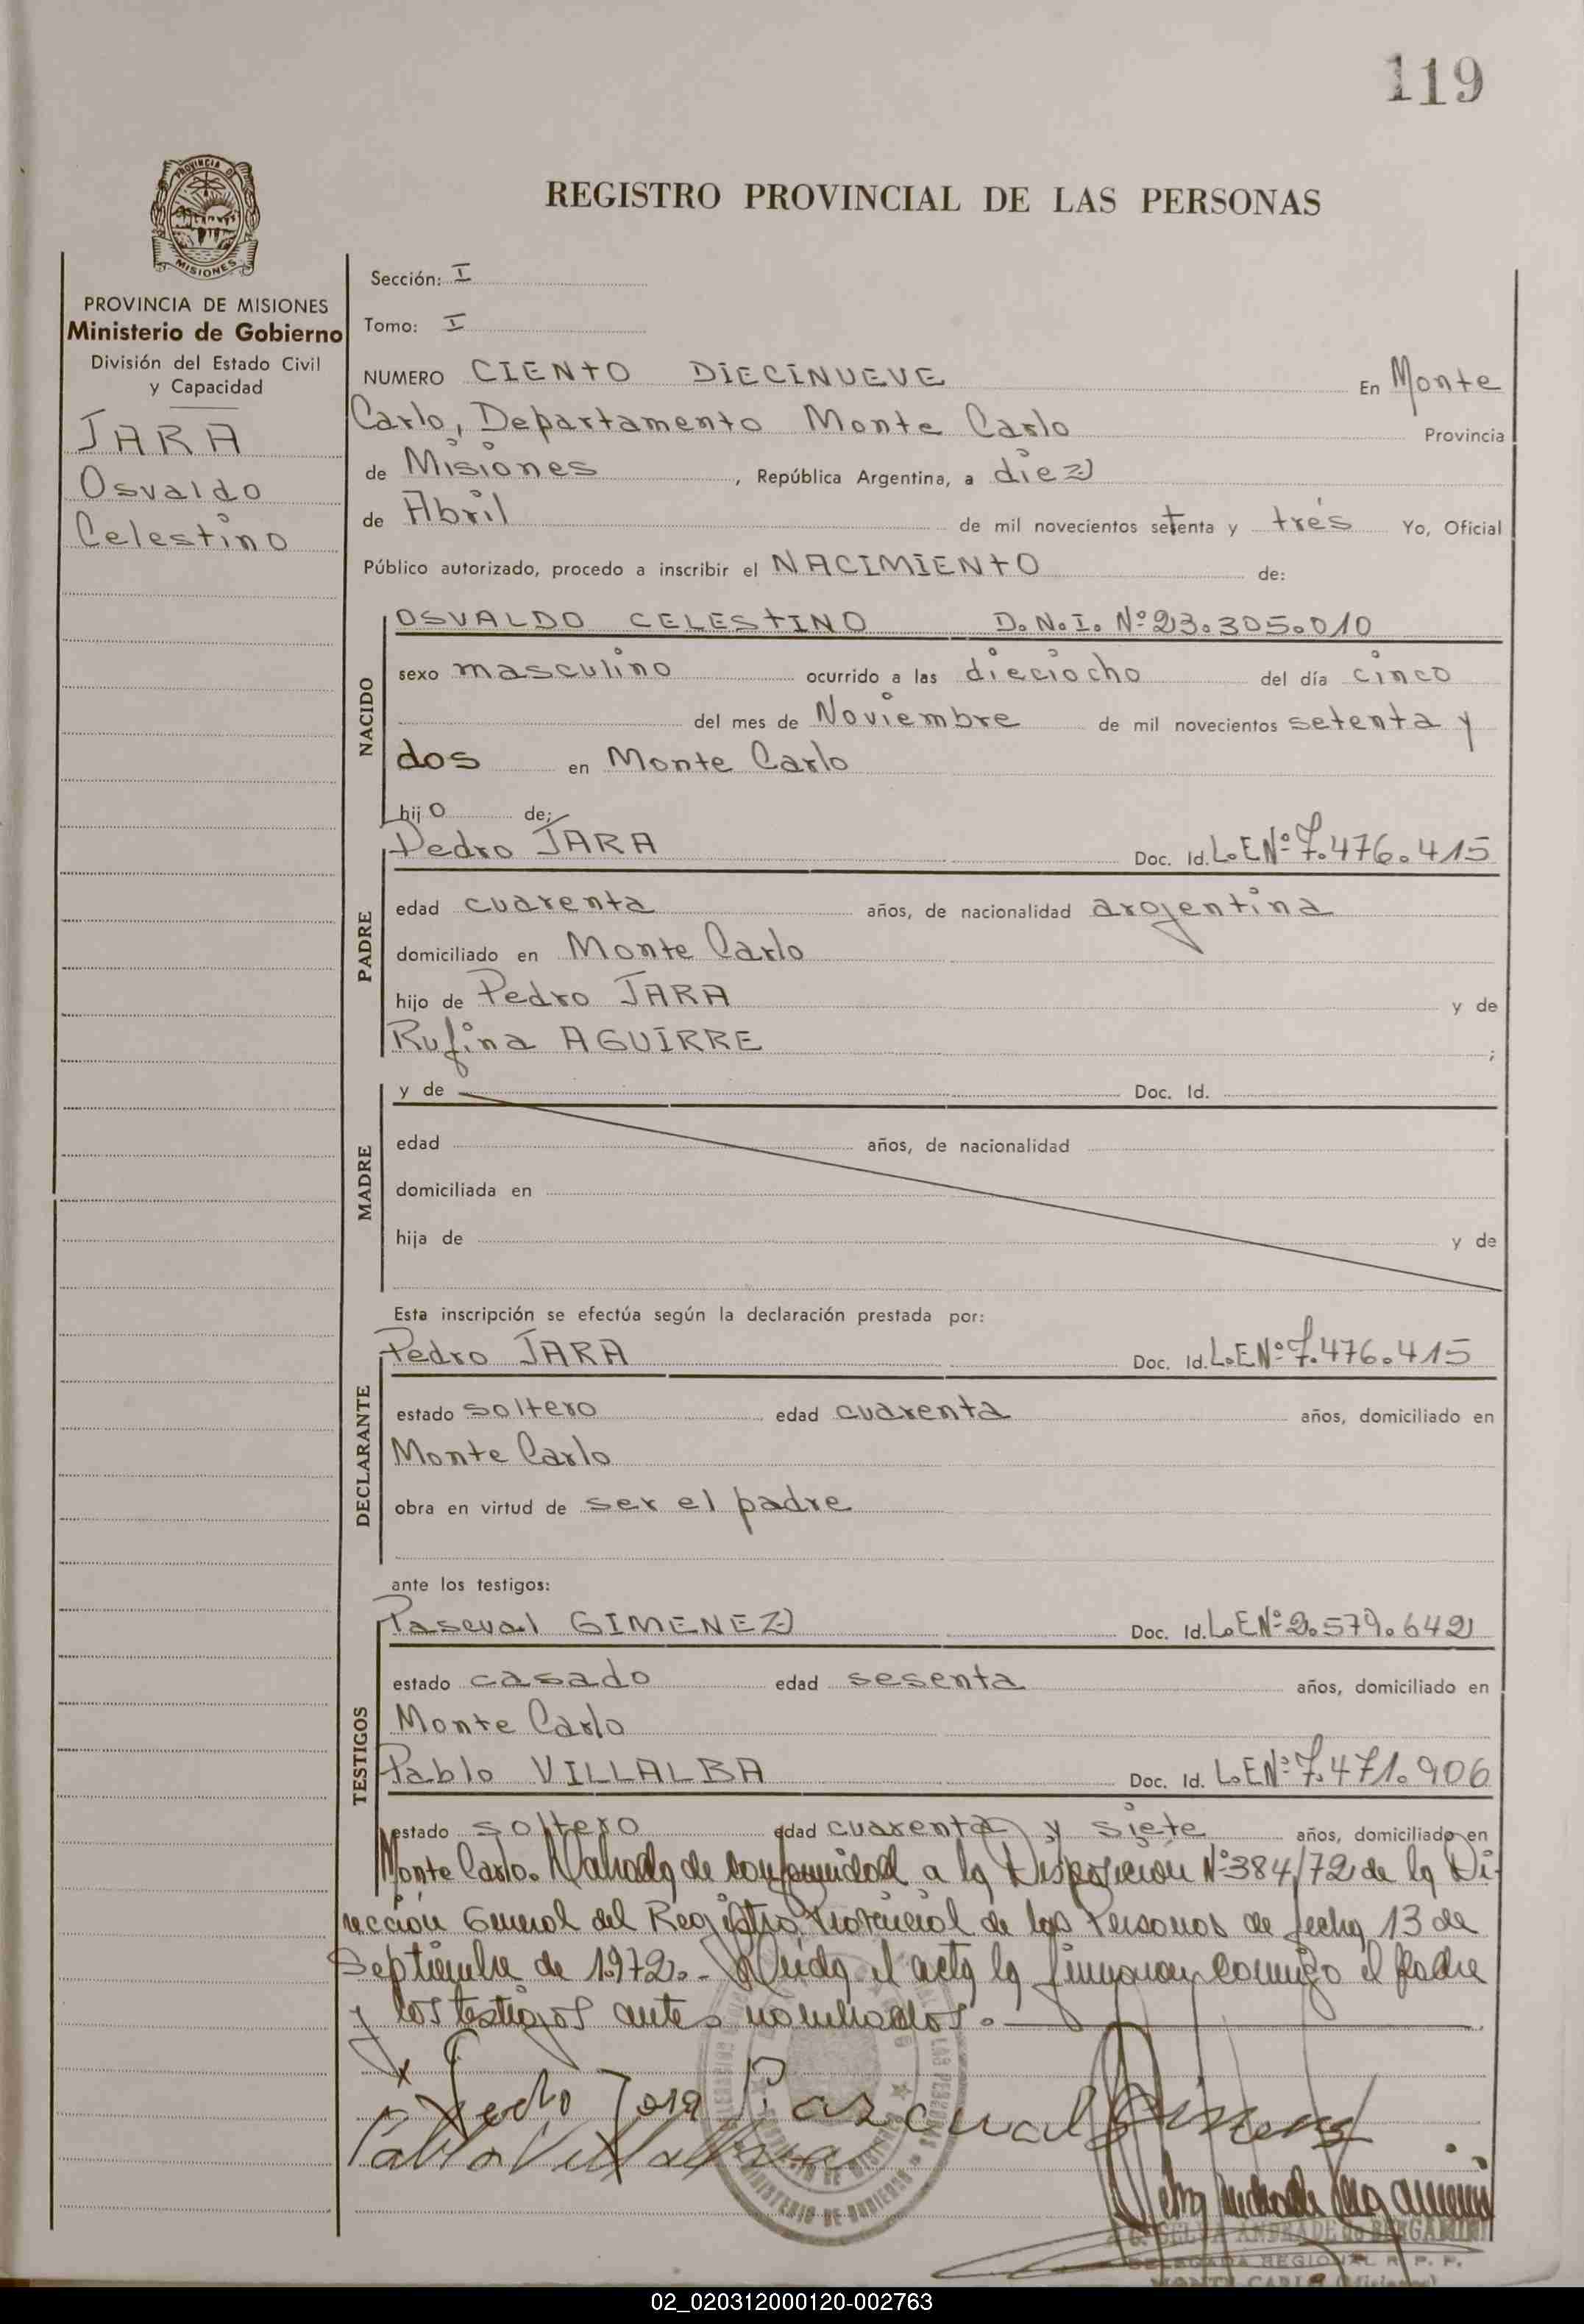 119
PROVINCIA DE
MISIONES
REGISTRO PROVINCIAL DE LAS PERSONAS
PROVINCIA DE MISIONES
Ministerio de Gobierno
División del Estado Civil
y Capacidad
JARA
Osvaldo
Celestino
Sección: I
Tomo: I
NUMERO CIENTO DIECINUEVE En Monte
Carlo, Departamento Monte Carlo Provincia
de Misiones, República Argentina, a diez
de Abril de mil novecientos setenta y trés Yo, Oficial
Público autorizado, procedo a inscribir el NACIMIENTO de:
NACIDO
OSVALDO CELESTINO D.N.I. Nº 23.305.010
sexo masculino ocurrido a las dieciocho del día cinco
del mes de Noviembre de mil novecientos setenta y
dos en Monte Carlo
hijo de:
PADRE
Pedro JARA Doc. Id. L.E Nº 7.476.415
edad cuarenta años, de nacionalidad argentina
domiciliado en Monte Carlo
hijo de Pedro JARA y de
Rufina AGUIRRE ;
MADRE
y de Doc. Id.
edad años, de nacionalidad
domiciliada en
hija de y de
Esta inscripción se efectúa según la declaración prestada por:
DECLARANTE
Pedro JARA Doc. Id. L.E Nº 7.476.415
estado soltero edad cuarenta años, domiciliado en
Monte Carlo
obra en virtud de ser el padre
ante los testigos:
TESTIGOS
Pascual GIMENEZ Doc. Id. L.E Nº 2.579.642
estado casado edad sesenta años, domiciliado en
Monte Carlo
Pablo VILLALBA Doc. Id. L.E Nº 7.471.906
estado soltero edad cuarenta y siete años, domiciliado en
Monte Carlo. de conformidad a la Disposición Nº 384/72 de la Di-
rección General del Registro Provincial de las Personas de fecha 13 de
Septiembre de 1.972.- Leida el acta la firman conmigo el padre
y los testigos antes nombrados.
x Pedro Jara Pascual Gimenez
Pablo Villalba
MINISTERIO DE GOBIERNO
SELVA ANDRADE de BERGAMINI
DELEGADA REGIONAL R. P. P.
MONTE CARLO (Misiones)
02_020312000120-002763